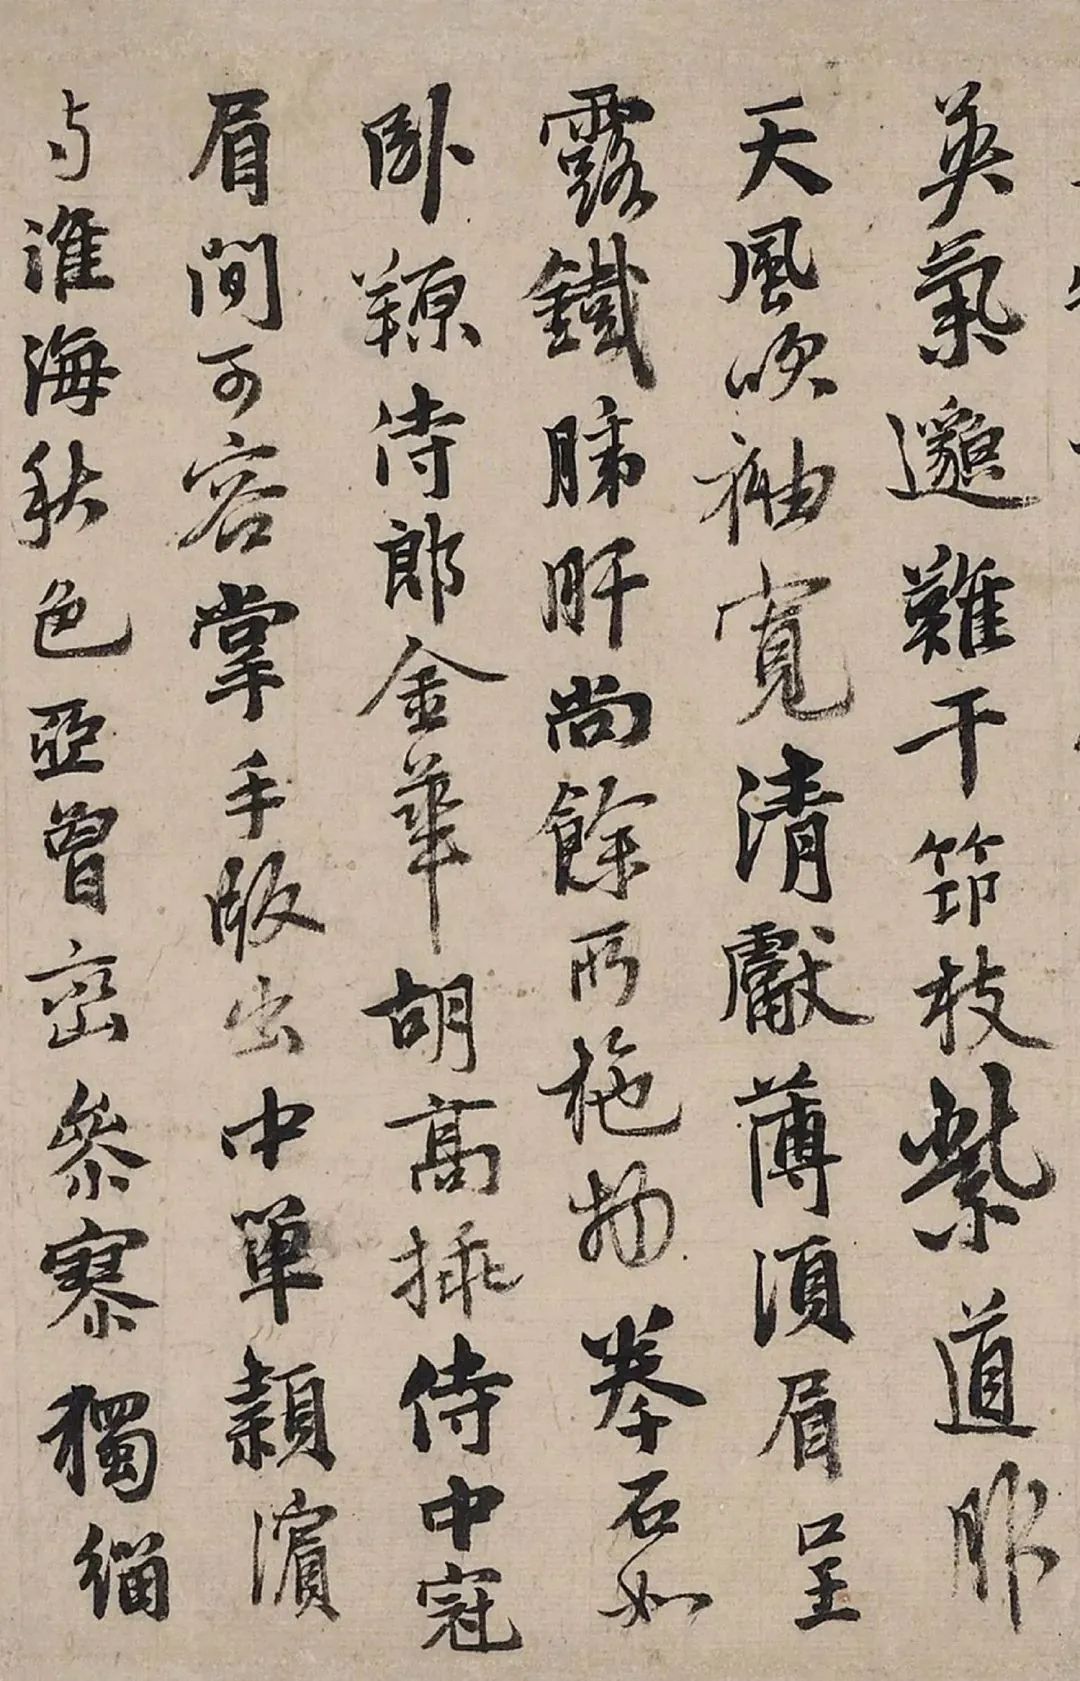 英氣邈難干筇枝紫道服
天風吹袖寬清獻薄須眉呈
露鐵肺肝尚餘所拖物拳石如
臥羱侍郎金華胡高插侍中冠
眉間可容掌手版出中單潁濱
与淮海秋色亞曾峦參寥獨緇